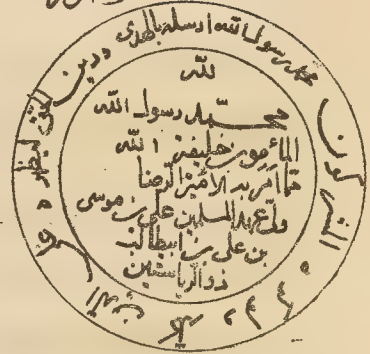 محمد رسول الله ارسله بالهدى ودين الحق ليظهره على الدين كله ولوكره المشركون
لله
محمد رسول الله
المأمور خليفة الله
مما امر به الامير الرضا
ولى عهد المسلمين على بن موسى
بن على بن ابيطالب
ذو الرياستين